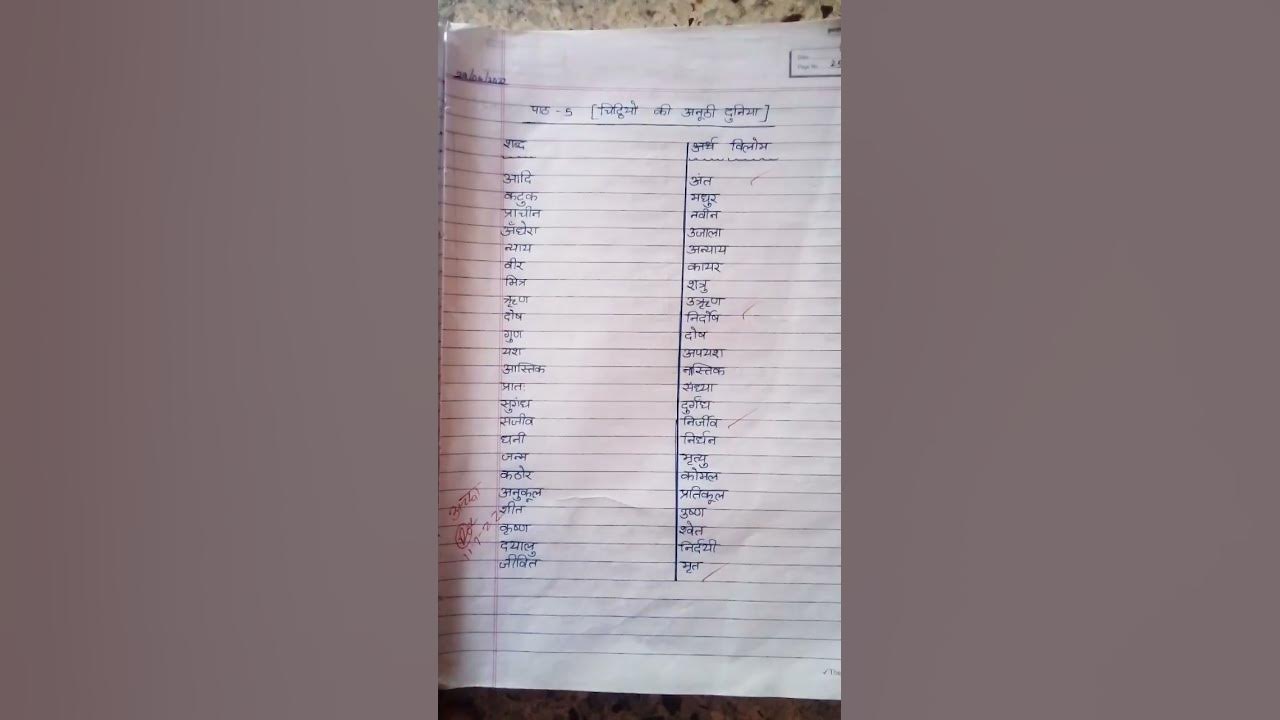 Date
Page No.
पाठ - 5 [चिट्ठियो की अनूठी दुनिया]
शब्द अर्थ विलोम
आदि अंत
कटुक मधुर
प्राचीन नवीन
अँधेरा उजाला
न्याय अन्याय
वीर कायर
मित्र शत्रु
ऋण उऋण
दोष निर्दोष
गुण दोष
यश अपयश
आस्तिक नास्तिक
प्रातः संध्या
सुगंध दुर्गंध
सजीव निर्जीव
धनी निर्धन
जन्म मृत्यु
कठोर कोमल
अनुकूल प्रतिकूल
शीत उष्ण
कृष्ण श्वेत
दयालु निर्दयी
जीवित मृत